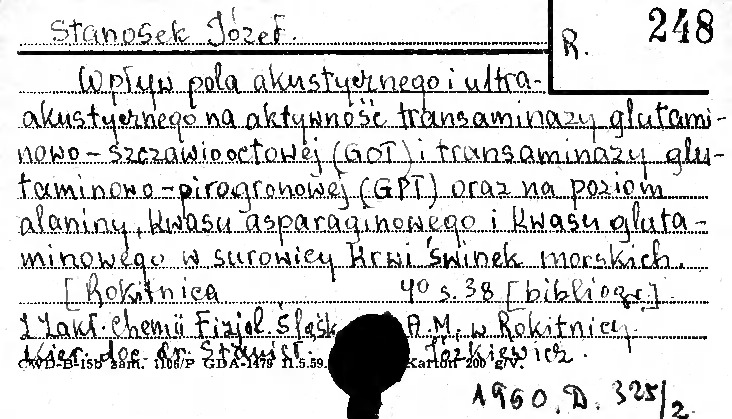 Stanosek Józef.
R. 248
Wpływ pola akustycznego i ultra-
akustycznego na aktywność transaminazy glutami-
nowo-szczawiooctowej (GOT) i transaminazy glu-
taminowo-pirogronowej (GPT) oraz na poziom
alaniny, kwasu asparaginowego i kwasu gluta-
minowego w surowicy krwi świnek morskich.
[Rokitnica 4° s. 38 [bibliogr.].
Z Zakł. Chemii Fizjol. Śląsk. A.M. w Rokitnicy.
Kier. doc. dr. Stanisł. Józkiewicz.
CWD-B-15b zam. 1106/P GDA-1479 11.5.59. Karton 200 g/V.
1960. D. 325/2